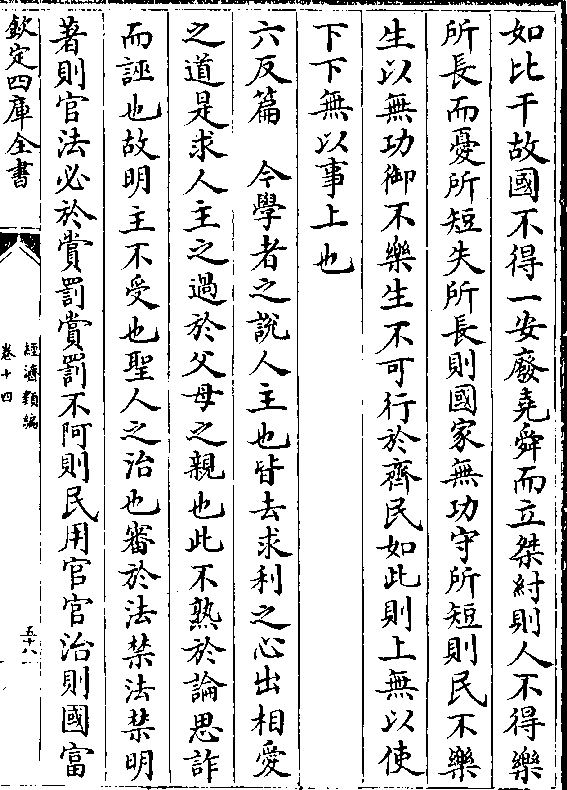 如比干故國不得一安廢堯舜而立桀紂則人不得樂
所長而憂所短失所長則國家無功守所短則民不樂
生以無功御不樂生不可行於齊民如此則上無以使
下下無以事上也
六反篇　今學者之說人主也皆去求利之心出相愛
之道是求人主之過於父母之親也此不熟於論恩詐
而誣也故明主不受也聖人之治也審於法禁法禁明
著則官法必於賞罰賞罰不阿則民用官官治則國富
欽定四庫全書
經濟類編
卷十四
五十八